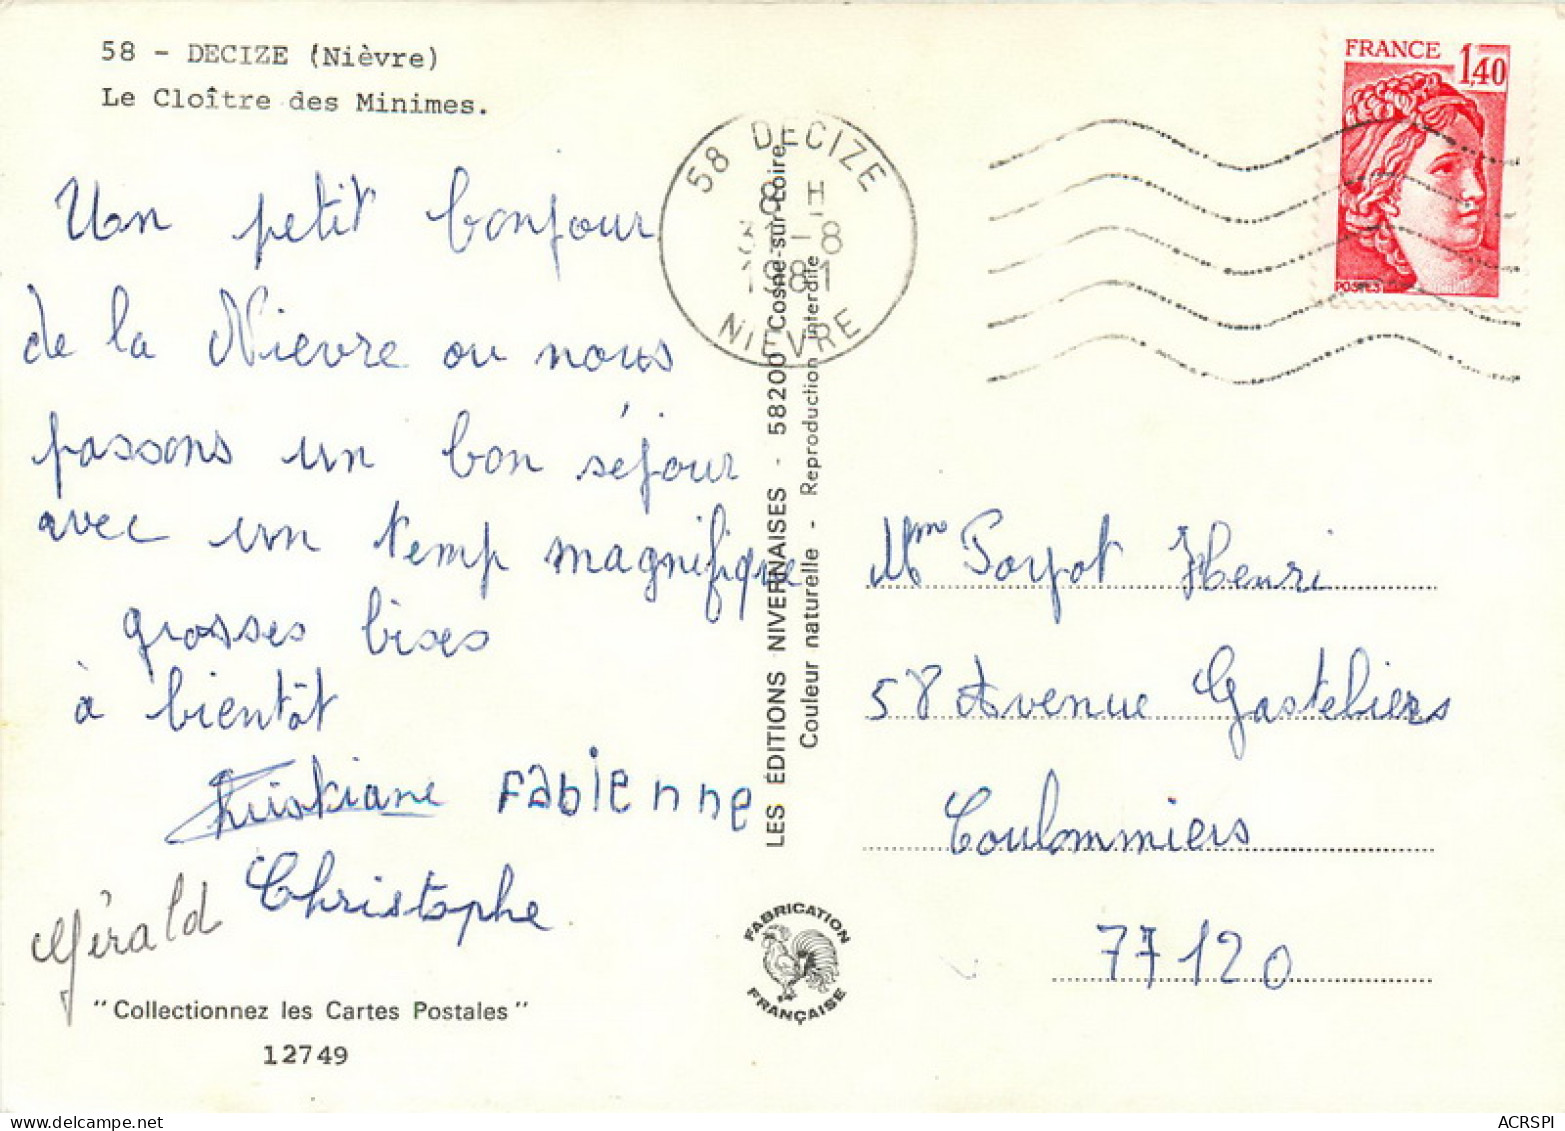 58 - DECIZE (Nièvre)
Le Cloître des Minimes.
Un petit bonjour
de la Nievre ou nous
passons un bon séjour
avec un temp magnifique
grosses bises
à bientôt
Kristiane Fabienne
Christophe
Gérald
"Collectionnez les Cartes Postales"
12749
58 DECIZE
8 H
31-8
1981
NIEVRE
LES ÉDITIONS NIVERNAISES - 58200 Cosne-sur-Loire
Couleur naturelle - Reproduction interdite
FABRICATION
FRANÇAISE
FRANCE
1,40
POSTES
Mme Poryot Henri
58 Avenue Gastebiers
Coulommiers
77120
ACRSPI